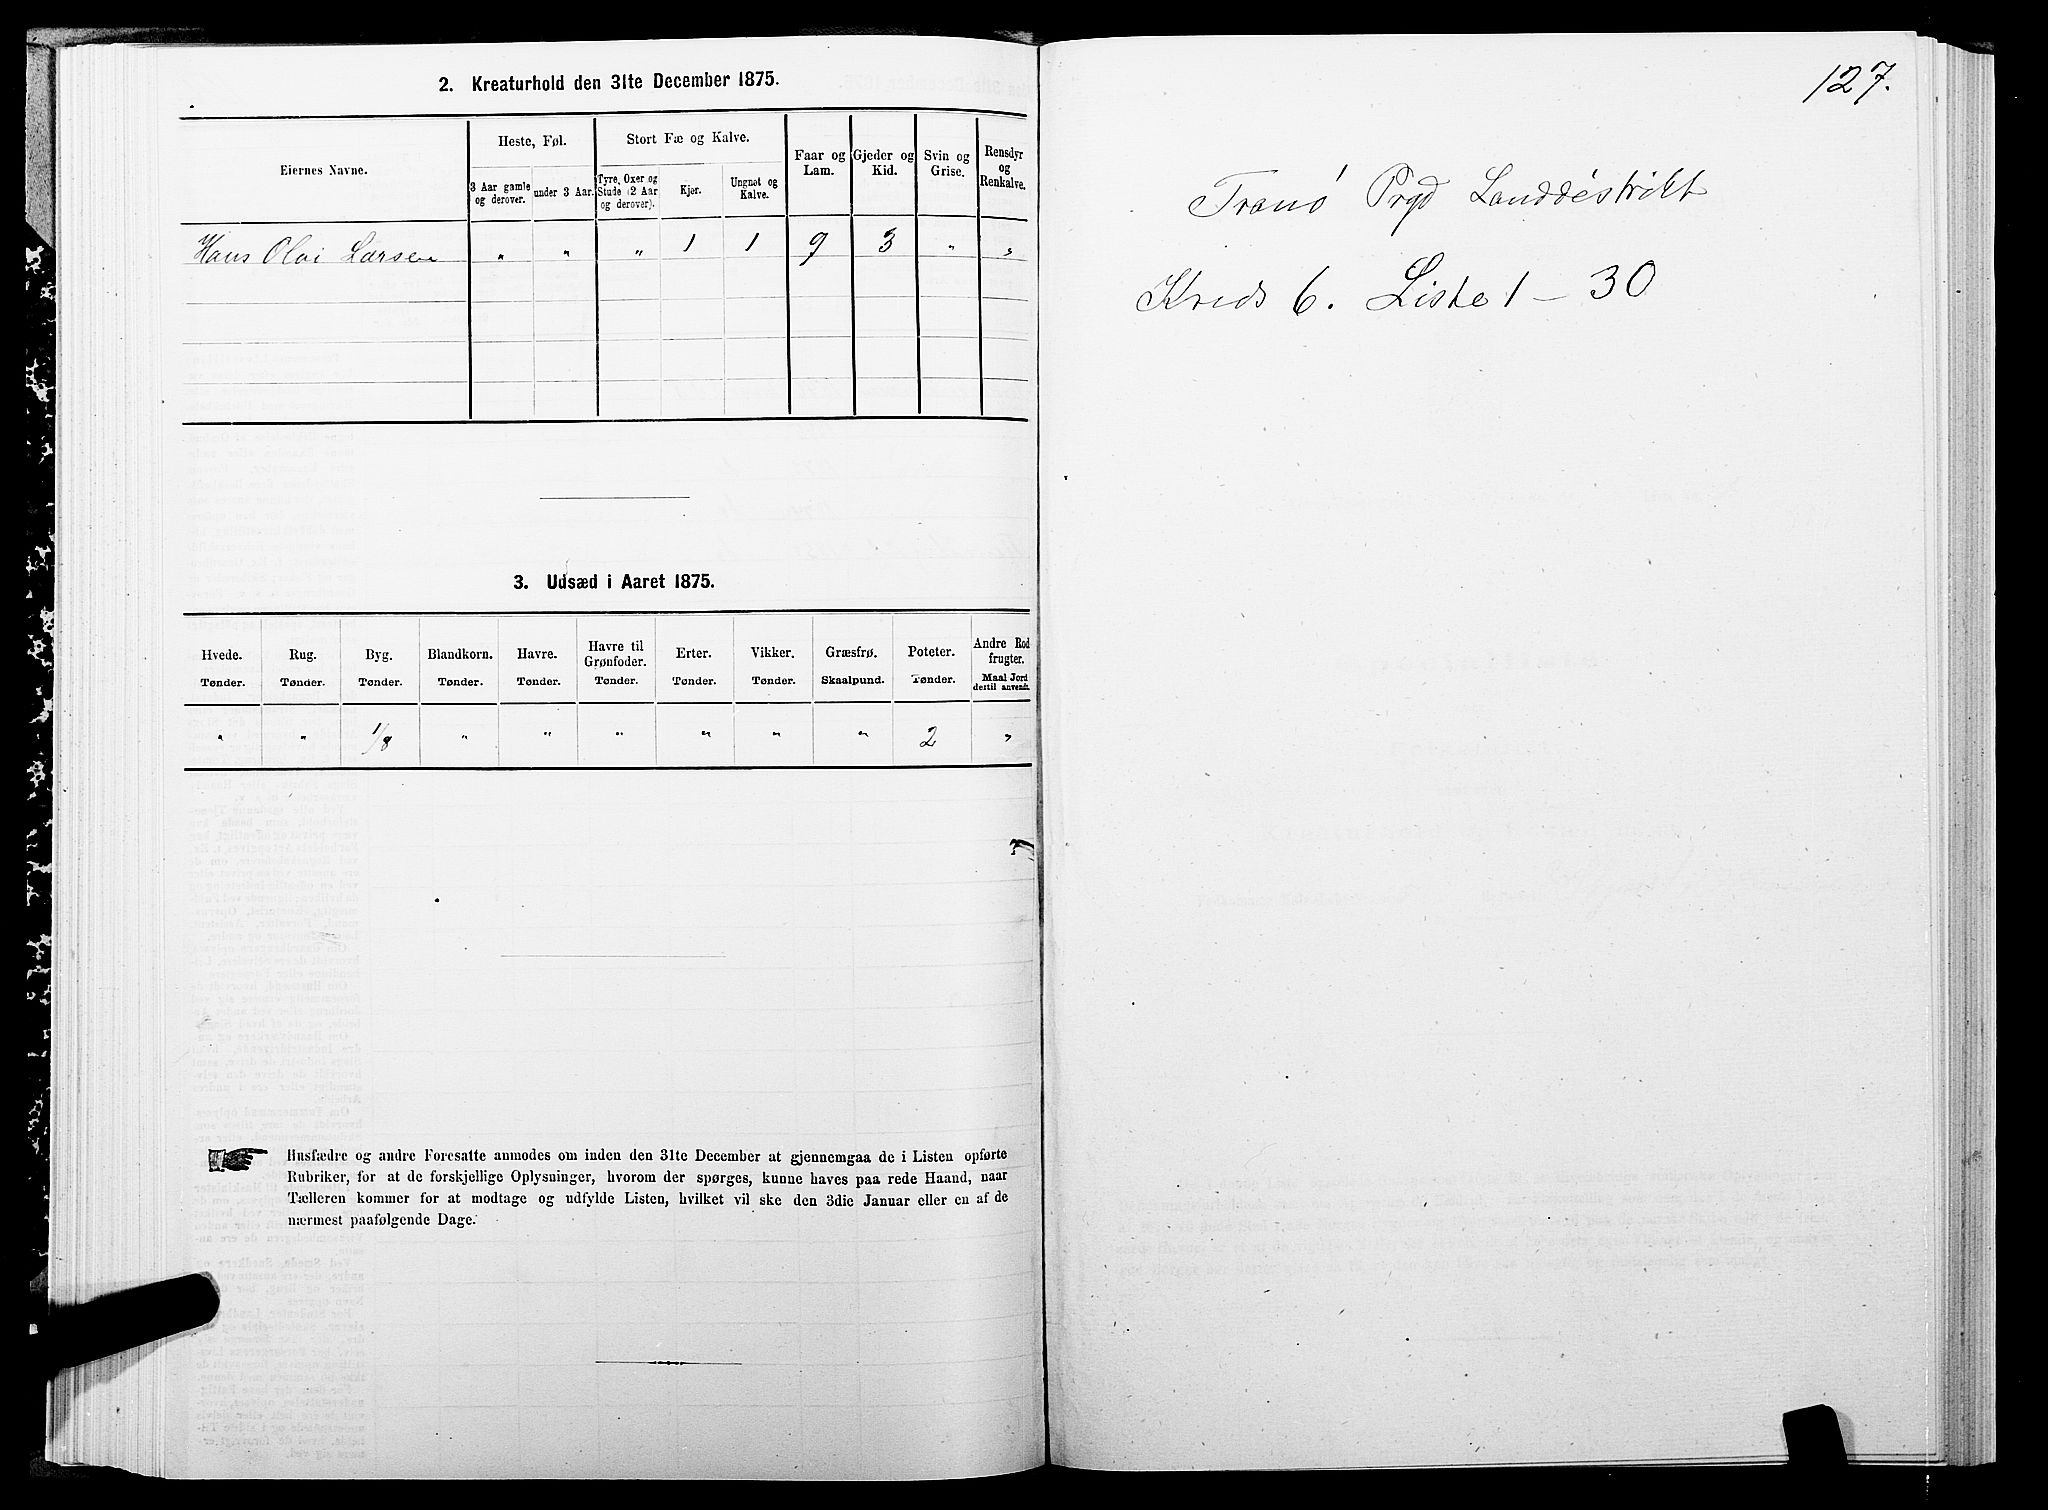 2. Kreaturhold den 31te December 1875.
Eiernes Navne.
Heste, Føl.
Stort Fæ og Kalve.
Faar og Lam.
Gjeder og Kid.
Svin og Grise.
Rensdyr og Renkalve.
3 Aar gamle og derover.
under 3 Aar.
Tyre, Oxer og Stude (2 Aar og derover).
Kjør.
Ungnøt og Kalve.
Hans Olai Larsen " " " 1 1 9 3 " "
3. Udsæd i Aaret 1875.
Hvede. Rug. Byg. Blandkorn. Havre. Havre til Grønfoder. Erter. Vikker. Græsfrø. Poteter. Andre Rodfrugter.
Tønder. Tønder. Tønder. Tønder. Tønder. Tønder. Tønder. Tønder. Skaalpund. Tønder. Maal Jord dertil anvendt.
" " 1/8 " " " " " " 2 "
Husfædre og andre Foresatte anmodes om inden den 31te December at gjennemgaa de i Listen opførte
Rubriker, for at de forskjellige Oplysninger, hvorom der spørges, kunne haves paa rede Haand, naar
Tælleren kommer for at modtage og udfylde Listen, hvilket vil ske den 3die Januar eller en af de
nærmest paafølgende Dage.
127.
Tranø Prgd Landdistrikt
Kreds 6. Liste 1 – 30